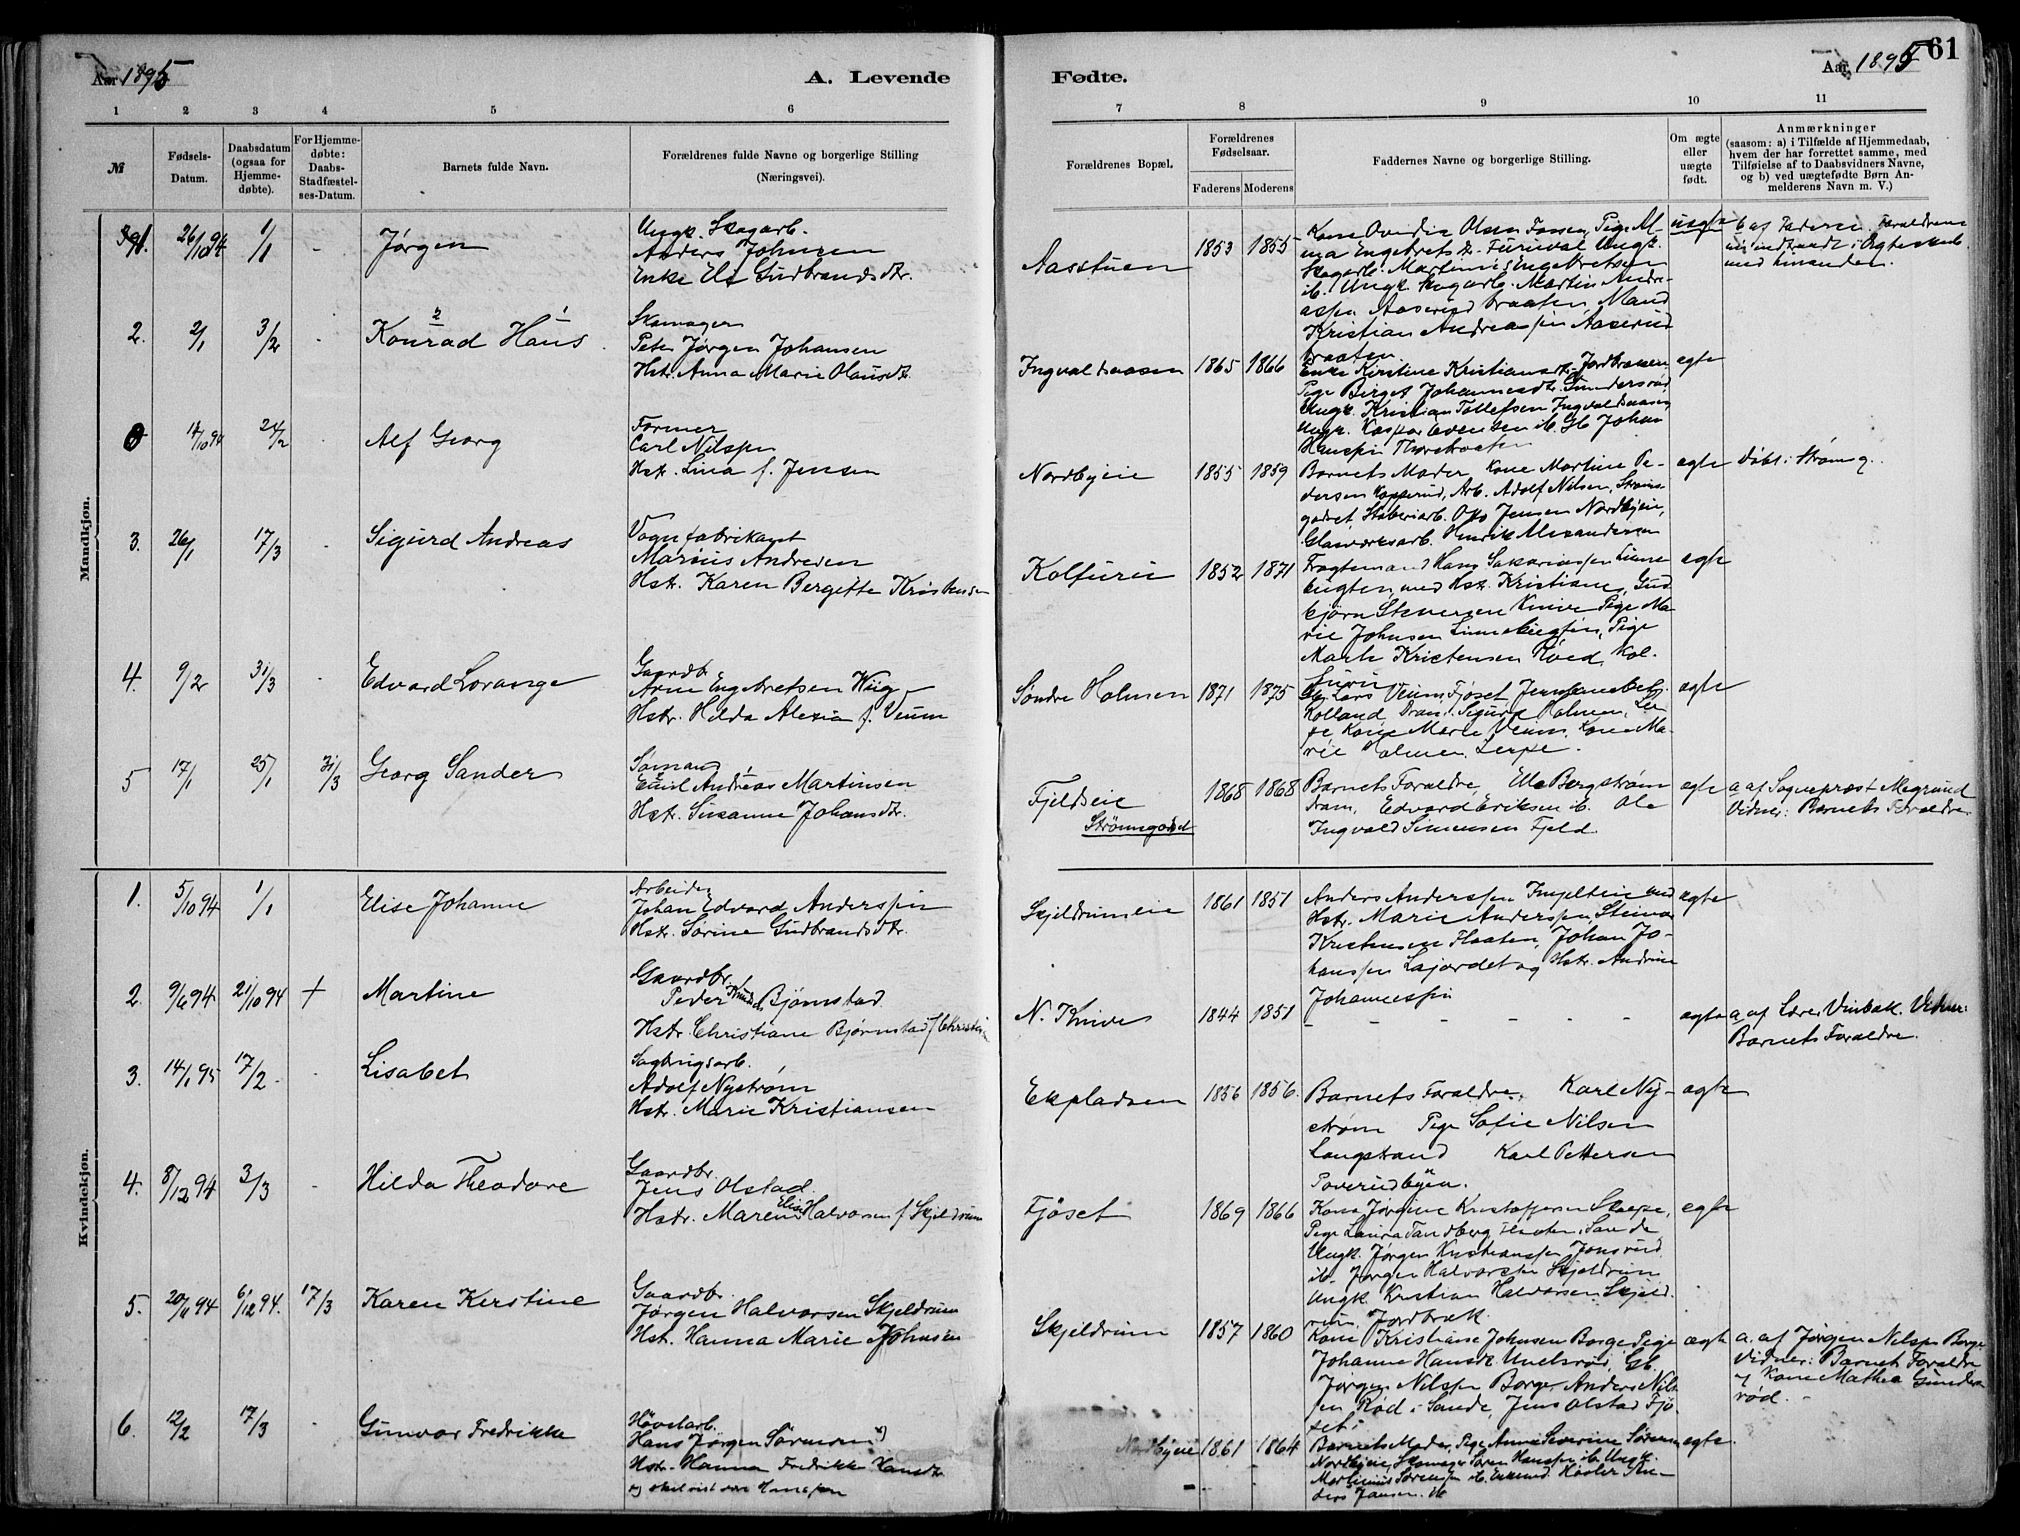 Aar 1895
A. Levende
Fødte.
Aar 1895
61
1 2 3 4 5 6 7 8 9 10 11
№
Fødsels-
Datum.
Daabsdatum
(ogsaa for
Hjemme-
døbte).
For Hjemme-
døbte:
Daabs-
Stadfæstel-
ses-Datum.
Barnets fulde Navn.
Forældrenes fulde Navne og borgerlige Stilling
(Næringsvei).
Forældrenes Bopæl.
Forældrenes
Fødselsaar.
Faderens Moderens
Faddernes Navne og borgerlige Stilling.
Om ægte
eller
uægte
født.
Anmærkninger
(saasom: a) i Tilfælde af Hjemmedaab,
hvem der har forrettet samme, med
Tilføielse af to Daabsvidners Navne,
og b) ved uægtefødte Børn An-
melderens Navn m. V.)
Mandkjøn.
1. 26/10 94 1/1 - Jørgen
Ungk. Skogarb.
Anders Johnsen
Enke Else Gudbrandsdtr.
Aasstuen 1853 1855
Kone Ovidia Olsen Fossen, Pige Al-
ma Engebretsd. Furuval Ungk.
Skogarb. Martinius Engebretsen
ib. Ungk. Skogarb. Martin Andre-
assen Aaserud braaten, Mand
Kristian Andreassen Aaserud
braaten.
uægte
b af Faderen. Forældrene
indtraadt i Ægteskab
med hinanden.
2. 2/1 3/2 - Konrad Hans
Skomager
Peter Jørgen Johansen
Hstr. Anna Marie Olausdtr.
Ingvaldsaasen 1865 1866
Enke Kirstine Kristiansdtr. Jordbrækken
Pige Birget Johannesdtr. Gundersrød,
Ungk. Kristian Tollefsen Ingvaldsaasen,
Ungk. Kaspar Evensen ib. Gb. Johan
Hanssen
ægte
0 14/10 94 24/2 Alf Georg
Former
Carl Nilssen
Hstr. Lina f. Jensen
Nordbyeie 1855 1859
Barnets Moder, Kone Martine Pe-
dersen Kopperud, Arb. Adolf Nilsen, Strøms-
godset, Støberiarb. Otto Jensen Nordbyeie,
Glasværksarb. Henrik Alexandersen
ægte døbt i Strømsg.
3. 26/1 17/3 - Sigurd Andreas
Vognfabrikant
Marius Andresen
Hstr. Karen Bergitte Kristensen
Kolfuru 1852 1871
Fragtemand Hans Sakariassen Linne-
bugten med Hstr. Kristiane, Gud-
bjørn Stenersen Knive Pige Ma-
rie Johnsen Linnebugten, Pige
Marte Kristensen Røed, Kol-
furu
ægte
4. 9/2 31/3 - Edvard Lorange
Gaardbr.
Arne Engebretsen Wiig
Hstr. Hilda Alexia f. Veum
Søndre Holmen 1871 1875
Gb. Lars Veum, Fjøset, Jernbanebetj.
Kolland Dram. Sigurd Holmen, Ler-
pe Kone Marte Veum, Kone Ma-
rie Holmen Lerpe.
ægte
5 17/1 25/1 31/3 Georg Sander
Sømand
Emil Andreas Martinsen
Hstr. Susanne Johansdtr.
Fjeldseie
Strømsgodset
1868 1868
Barnets Forældre, Elle Bergstrøm
Dram, Edvard Eriksen ib. Ole
Ingvald Simensen Fjeld.
ægte
a af Sognepræst Magrund
Vidner: Barnets Forældre
Kvindekjøn.
1. 5/10 94 1/1 - Elise Johanne
Arbeider
Johan Edvard Anderssen
Hstr. Sørine Gudbrandsdtr.
Skjeldrumeie 1861 1851
Anders Anderssen med
Hstr. Marie Anderssen,
Kristensen Flaaten, Johan Jo-
hanssen Lajordet og Hstr. Andrine
Johannessen
ægte
2. 9/6 94 21/10 94 + Martine
Gaardbr.
Peder Knudsen Bjørnstad
Hstr. Christiane Bjørnstad f.
N. Knive 1844 1851 - - - - - -
ægte
a af Lærer Vinbak. Vidner:
Barnets Forældre.
3. 14/1 95 17/2 - Lisabet
Sagbrugsarb.
Adolf Nystrøm
Hstr. Marie Kristiansen
Ekpladsen 1856 1856.
Barnets Forældre, Karl Ny-
strøm Pige Sofie Nilsen
Langstrand Karl Pettersen
Poverudbyen.
ægte
4. 8/12 94 3/3 - Hilda Theodore
Gaardbr.
Jens Olstad
Hstr. Maren Elise Halvorsen f. Skjeldrum
Fjøset 1869 1866
Kone Jørgine Kristoffersen Skerpe,
Pige Laura Tandberg Flaaten, Sande
Ungk. Jørgen Kristianssen Jonsrud
ib. Jørgen Halvorsen Skjeldrum
Ungk. Kristian Halvorsen Skjeld-
rum, Jordbræk.
ægte
5. 20/11 94 6/12 94. 17/3 Karen Kirstine
Gaardbr.
Jørgen Halvorsen Skjeldrum
Hstr. Hanna Marie Johnsen
Skjeldrum 1857 1860
Kone Kristiane Johnsen Borge Pige
Johanne Hansdtr. Unelsrød, Gb.
Jørgen Nilssen Borge, Anders Nils-
sen Rød i Sande, Jens Olstad Fjø-
set.
ægte
a. af Jørgen Nilssen Borge
Vidner: Barnets Forældre
og Kone Mathea Gunders-
rød.
6. 12/2 17/3 - Gunvor Fredrikke
Høvlarb.
Hans Jørgen Sørensen x)
Hstr. Hanna Fredrikke Hansdtr.
Nordbyeie 1861 1864
Barnets Moder, Pige Anne Severine Sørensen
Nordbyeie, Skomager Søren Hanssen ib. Ungk.
Martinius Sørensen ib.
ders Jansen. ib
ægte.